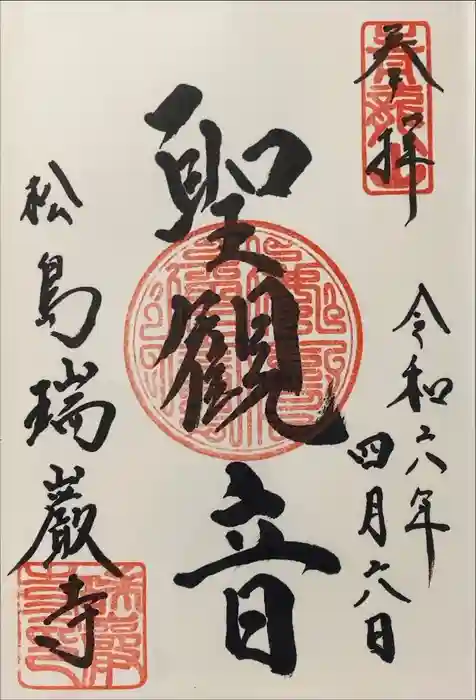 奉拝
令和六年
四月六日
聖観音
松島瑞巌寺